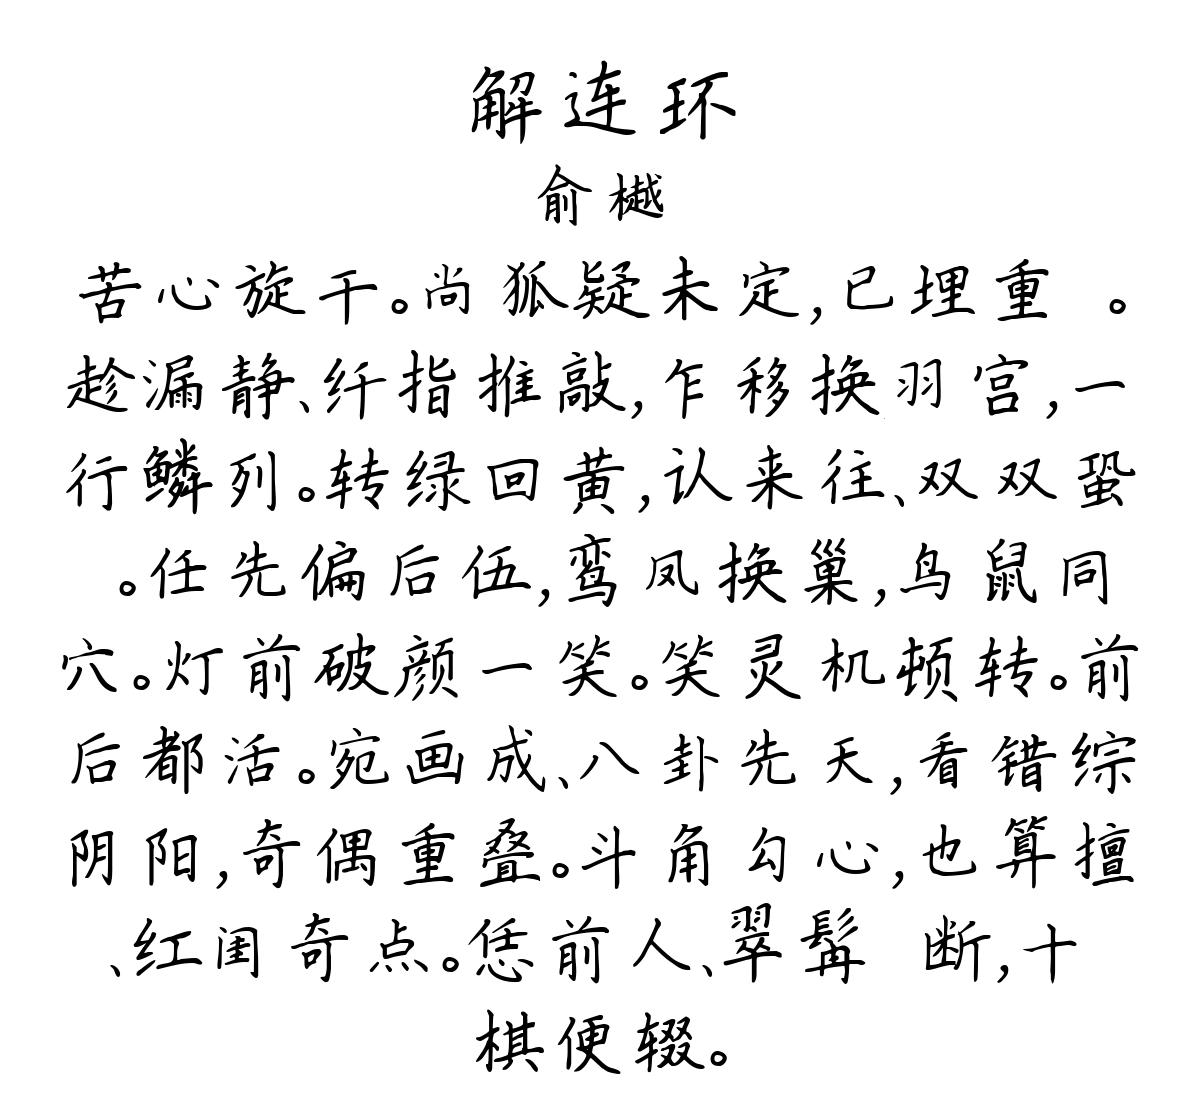 解连环
俞樾
苦心旋干。尚狐疑未定,已埋重 。
趁漏静、纤指推敲,乍移换羽宫,一
行鳞列。转绿回黄,认来往、双双蛩
。任先偏后伍,鸾凤换巢,鸟鼠同
穴。灯前破颜一笑。笑灵机顿转。前
后都活。宛画成、八卦先天,看错综
阴阳,奇偶重叠。斗角勾心,也算擅
、红闺奇点。恁前人、翠髯 断,十
棋便辍。